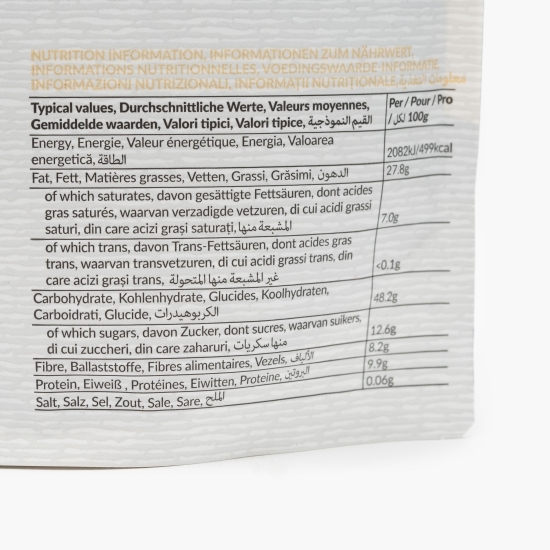 NUTRITION INFORMATION, INFORMATIONEN ZUM NÄHRWERT,
INFORMATIONS NUTRITIONNELLES, VOEDINGSWAARDE INFORMATIE,
INFORMAZIONI NUTRIZIONALI, INFORMAȚII NUTRIȚIONALE معلومات التغذية
Typical values, Durchschnittliche Werte, Valeurs moyennes, Per / Pour / Pro
Gemiddelde waarden, Valori tipici, Valori tipice, القيم النموذجية / لكل 100g
Energy, Energie, Valeur énergétique, Energia, Valoarea
energetică, الطاقة 2082kJ/499kcal
Fat, Fett, Matières grasses, Vetten, Grassi, Grăsimi, الدهون 27.8g
of which saturates, davon gesättigte Fettsäuren, dont acides
gras saturés, waarvan verzadigde vetzuren, di cui acidi grassi
saturi, din care acizi grași saturați, المشبعة منها 7.0g
of which trans, davon Trans-Fettsäuren, dont acides gras
trans, waarvan transvetzuren, di cui acidi grassi trans, din
care acizi grași trans, غير المشبعة منها المتحولة <0.1g
Carbohydrate, Kohlenhydrate, Glucides, Koolhydraten,
Carboidrati, Glucide, الكربوهيدرات 48.2g
of which sugars, davon Zucker, dont sucres, waarvan suikers,
di cui zuccheri, din care zaharuri, منها سكريات 12.6g
Fibre, Ballaststoffe, Fibres alimentaires, Vezels, الألياف 8.2g
Protein, Eiweiß, Protéines, Eiwitten, Proteine, البروتين 9.9g
Salt, Salz, Sel, Zout, Sale, Sare, الملح 0.06g